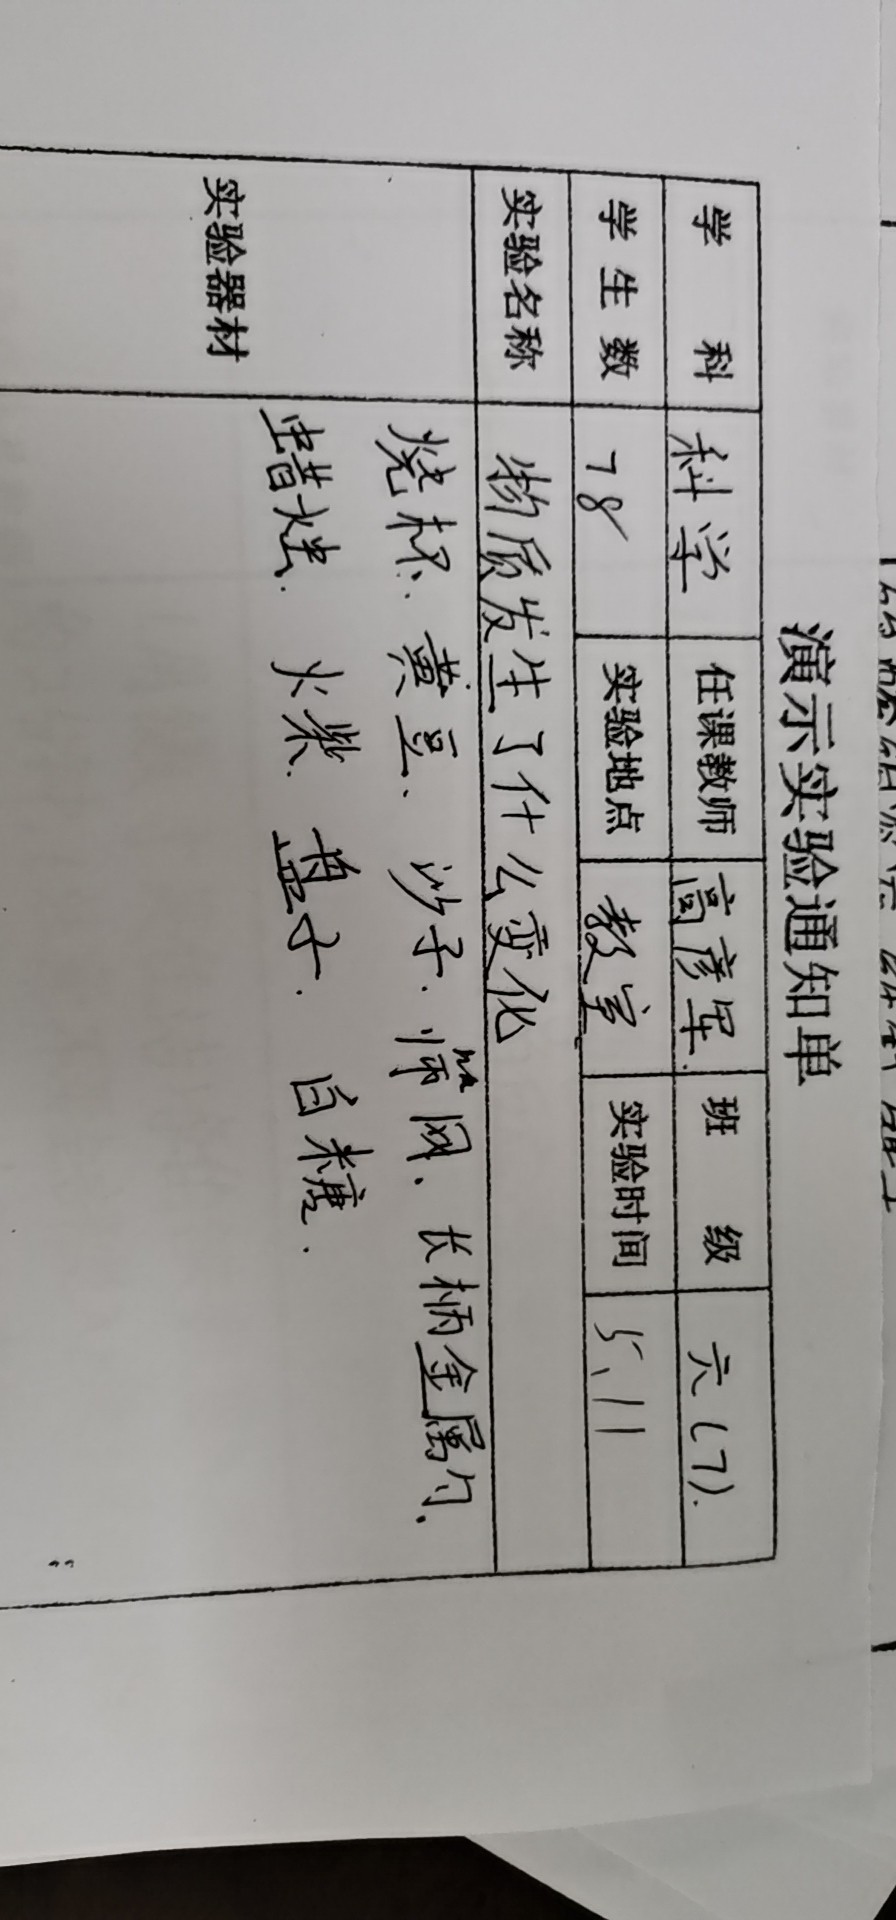 演示实验通知单
学科 科学 任课教师 高彦军 班级 六(7).
学生数 78 实验地点 教室 实验时间 5、11
实验名称 物质发生了什么变化
实验器材 烧杯、黄豆、沙子、筛网、长柄金属勺、
蜡烛、火柴、盘子、白糖.